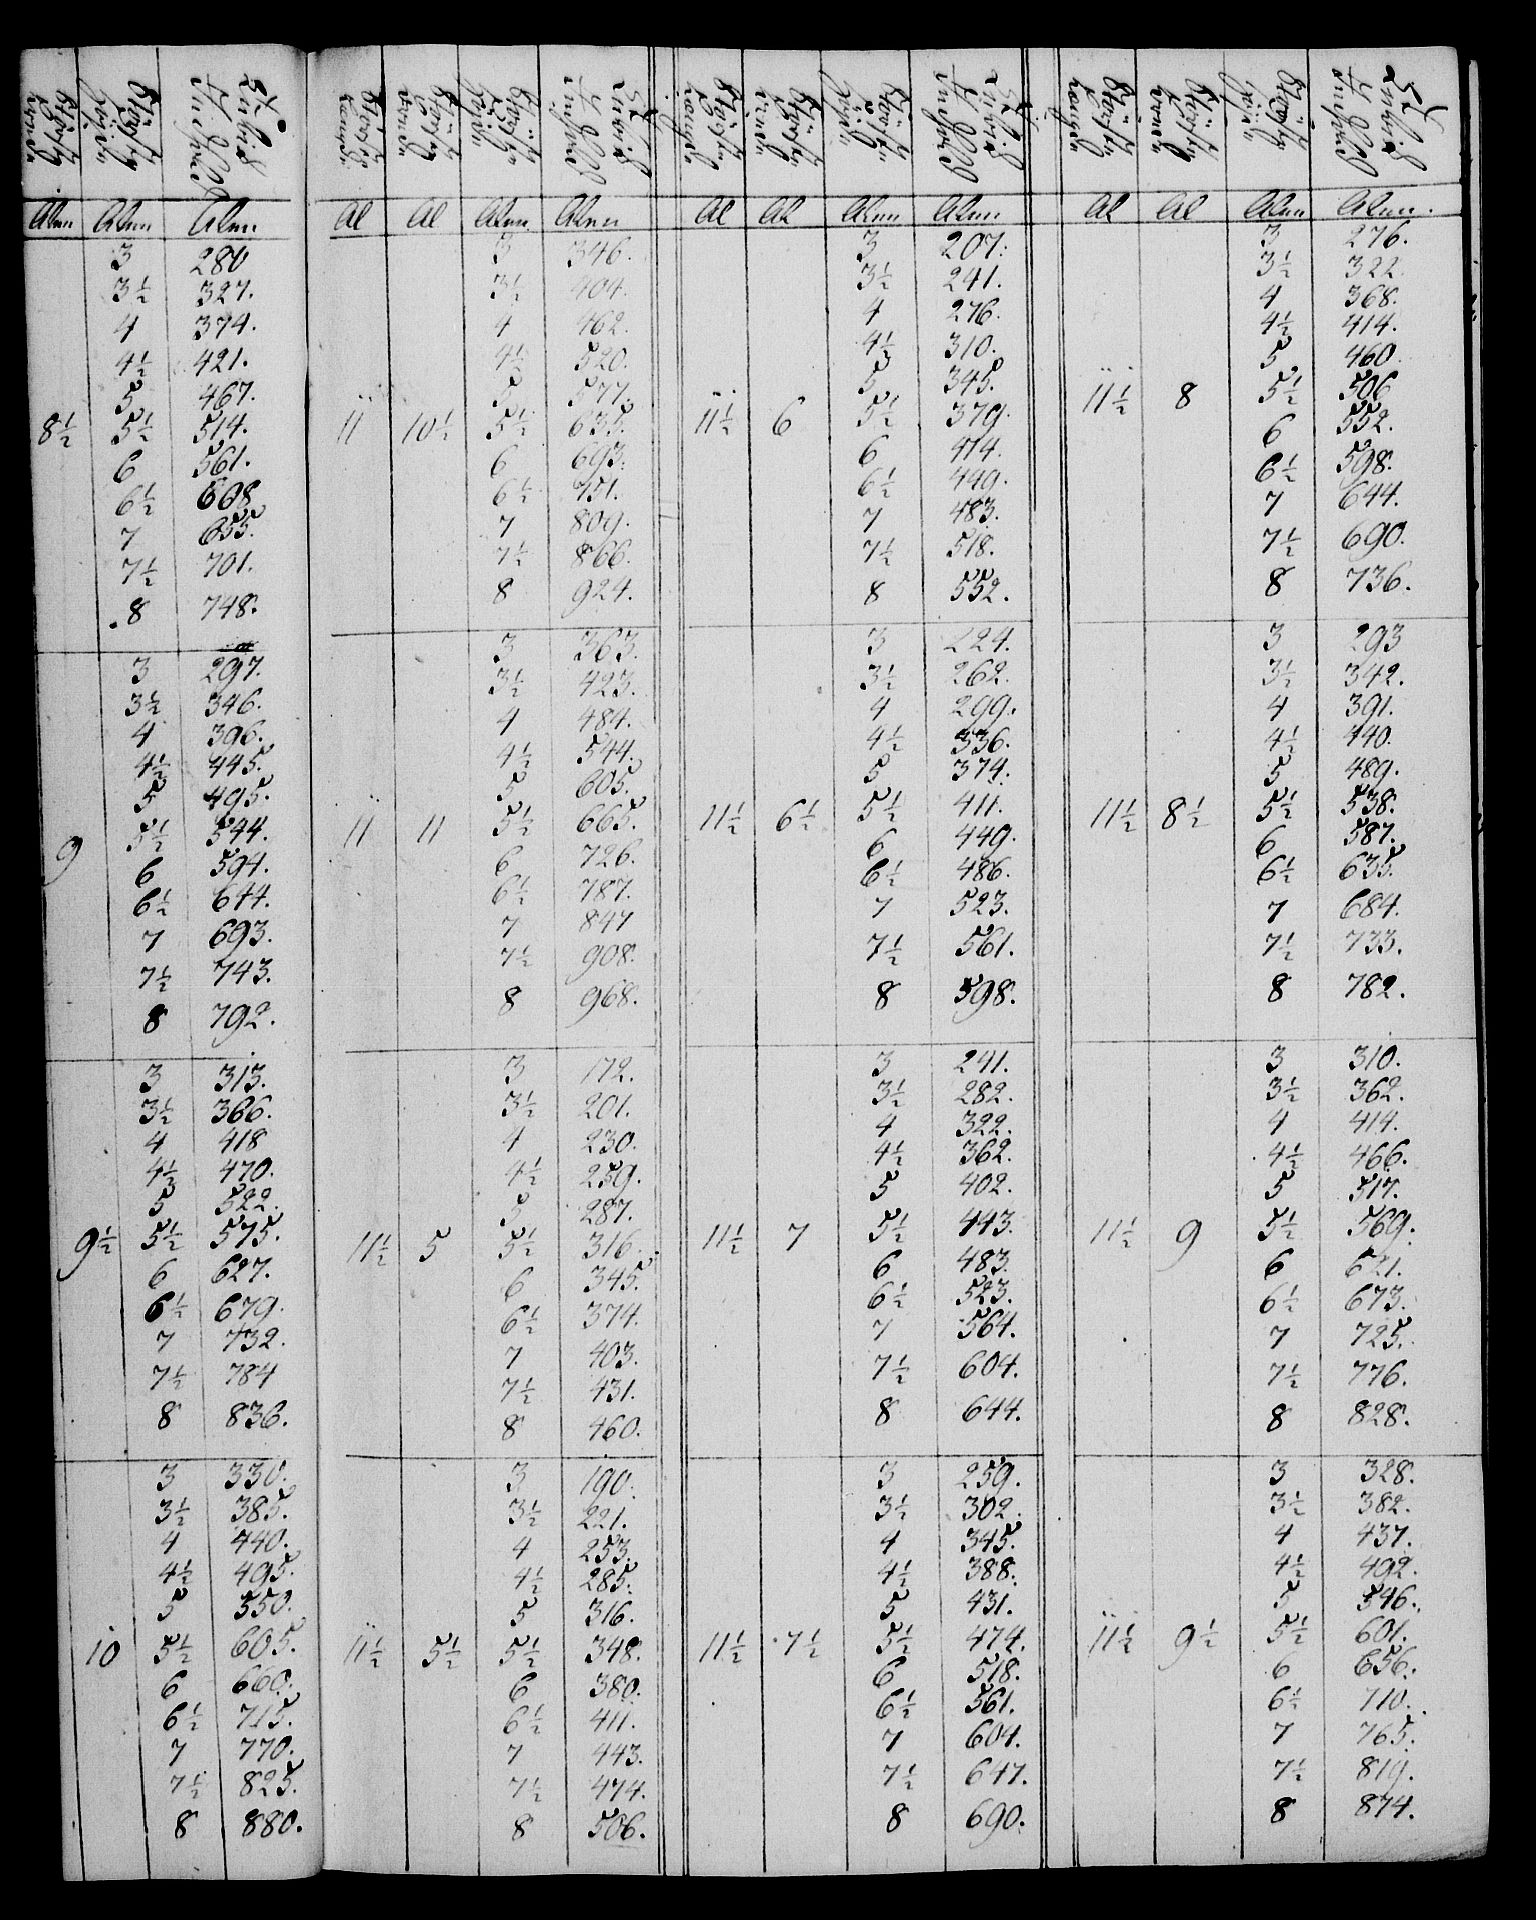 Alnn Alnn Alnn
3 280
3½ 327.
4 374.
4½ 421.
5 467.
8½ 5½ 514.
6 561.
6½ 608
7 655.
7½ 701.
8 748.
3 297.
3½ 346.
4 396.
4½ 445.
5 495.
9 5½ 544.
6 594.
6½ 644.
7 693.
7½ 743.
8 792.
3 313.
3½ 366.
4 418
4½ 470.
5 522.
9½ 5½ 575.
6 627.
6½ 679.
7 732.
7½ 784
8 836.
3 330.
3½ 385.
4 440.
4½ 495.
5 550.
10 5½ 605.
6 660.
6½ 715.
7 770.
7½ 825.
8 880.
Al Al Alnn Alnn
3 346.
3½ 404.
4 462.
4½ 520.
5 577.
11 10½ 5½ 635.
6 693.
6½ 751.
7 809.
7½ 866.
8 924.
3 363.
3½ 423.
4 484.
4½ 544.
5 605.
11 11 5½ 665.
6 726.
6½ 787.
7 847
7½ 908.
8 968.
3 172.
3½ 201.
4 230.
4½ 259.
5 287.
11½ 5 5½ 316.
6 345.
6½ 374.
7 403.
7½ 431.
8 460.
3 190.
3½ 221.
4 253.
4½ 285.
5 316.
11½ 5½ 5½ 348.
6 380.
6½ 411.
7 443.
7½ 474.
8 506.
Al Al Alnn Alnn
3 207.
3½ 241.
4 276.
4½ 310.
5 345.
11½ 6 5½ 379.
6 414.
6½ 449.
7 483.
7½ 518.
8 552.
3 224.
3½ 262.
4 299.
4½ 336.
5 374.
11½ 6½ 5½ 411.
6 449.
6½ 486.
7 523.
7½ 561.
8 598.
3 241.
3½ 282.
4 322.
4½ 362.
5 402.
11½ 7 5½ 443.
6 483.
6½ 523.
7 564.
7½ 604.
8 644.
3 259.
3½ 302.
4 345.
4½ 388.
5 431.
11½ 7½ 5½ 474.
6 518.
6½ 561.
7 604.
7½ 647.
8 690.
Al Al Alnn Alnn.
3 276.
3½ 322.
4 368.
4½ 414.
5 460.
11½ 8 5½ 506
6 552.
6½ 598.
7 644.
7½ 690.
8 736.
3 293
3½ 342.
4 391.
4½ 440.
5 489.
11½ 8½ 5½ 538.
6 587.
6½ 635.
7 684.
7½ 733.
8 782.
3 310.
3½ 362.
4 414.
4½ 466.
5 517.
11½ 9 5½ 569.
6 621.
6½ 673.
7 725.
7½ 776.
8 828.
3 328.
3½ 382.
4 437.
4½ 492.
5 546.
11½ 9½ 5½ 601.
6 656.
6½ 710.
7 765.
7½ 819.
8 874.